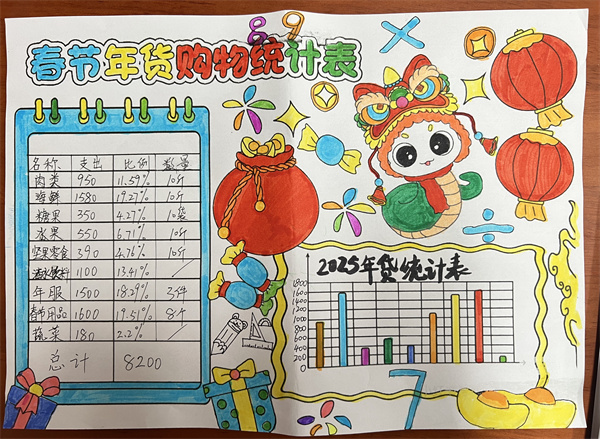 8 9
春节年货购物统计表
名称 支出 比例 数量
肉类 950 11.59% 10斤
海鲜 1580 19.27% 10斤
糖果 350 4.27% 10袋
水果 550 6.71% 10斤
坚果零食 390 4.76% 10斤
酒水饮料 1100 13.41% /
年服 1500 18.29% 3件
春节用品 1600 19.51% 8件
蔬菜 180 2.2% /
总计 8200
2025年货统计表
1800
1600
1400
1200
1000
800
600
400
200
0
7